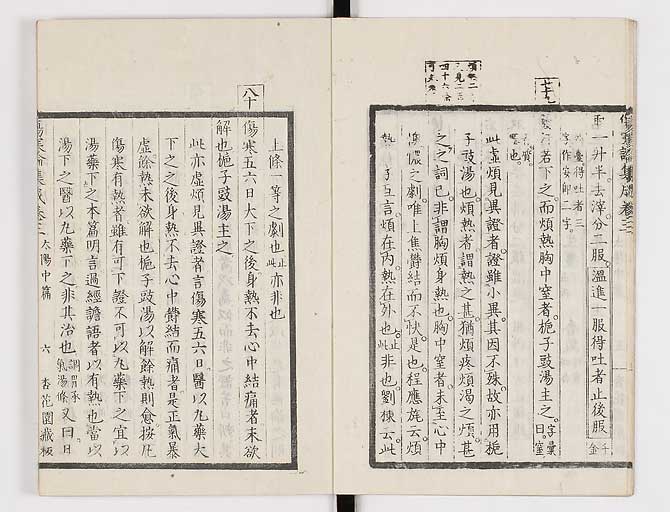 傷寒論集成卷三
一升半去滓分二服溫進一服得吐者止後服
若下之而煩熱胸中窒者梔子豉湯主之
此虛煩見異證者證雖小異其因不殊故亦用梔
子豉湯也煩熱者謂熱之甚猶煩疼煩渴之煩甚
之之詞已非謂胸煩身熱也胸中窒者未至心中
懊憹之劇唯上焦欝結而不快是也程應旄云煩
熱子互言煩在內熱在外也此非也劉棟云此
上條一等之劇也止此亦非也
八十
傷寒五六日大下之後身熱不去心中結痛者未欲
解也梔子豉湯主之
此亦虛煩見異證者言傷寒五六日醫以丸藥大
下之之後身熱不去心中欝結而痛者是正氣暴
虛餘熱未欲解也梔子豉湯以解餘熱則愈按凡
傷寒有熱者雖有可下證不可以丸藥下之宜以
湯藥下之本篇明言過經譫語者以有熱也當以
湯下之醫以丸藥下之非其治也 謂胃承氣湯條 又曰日
太陽中篇
六
杏花園藏板